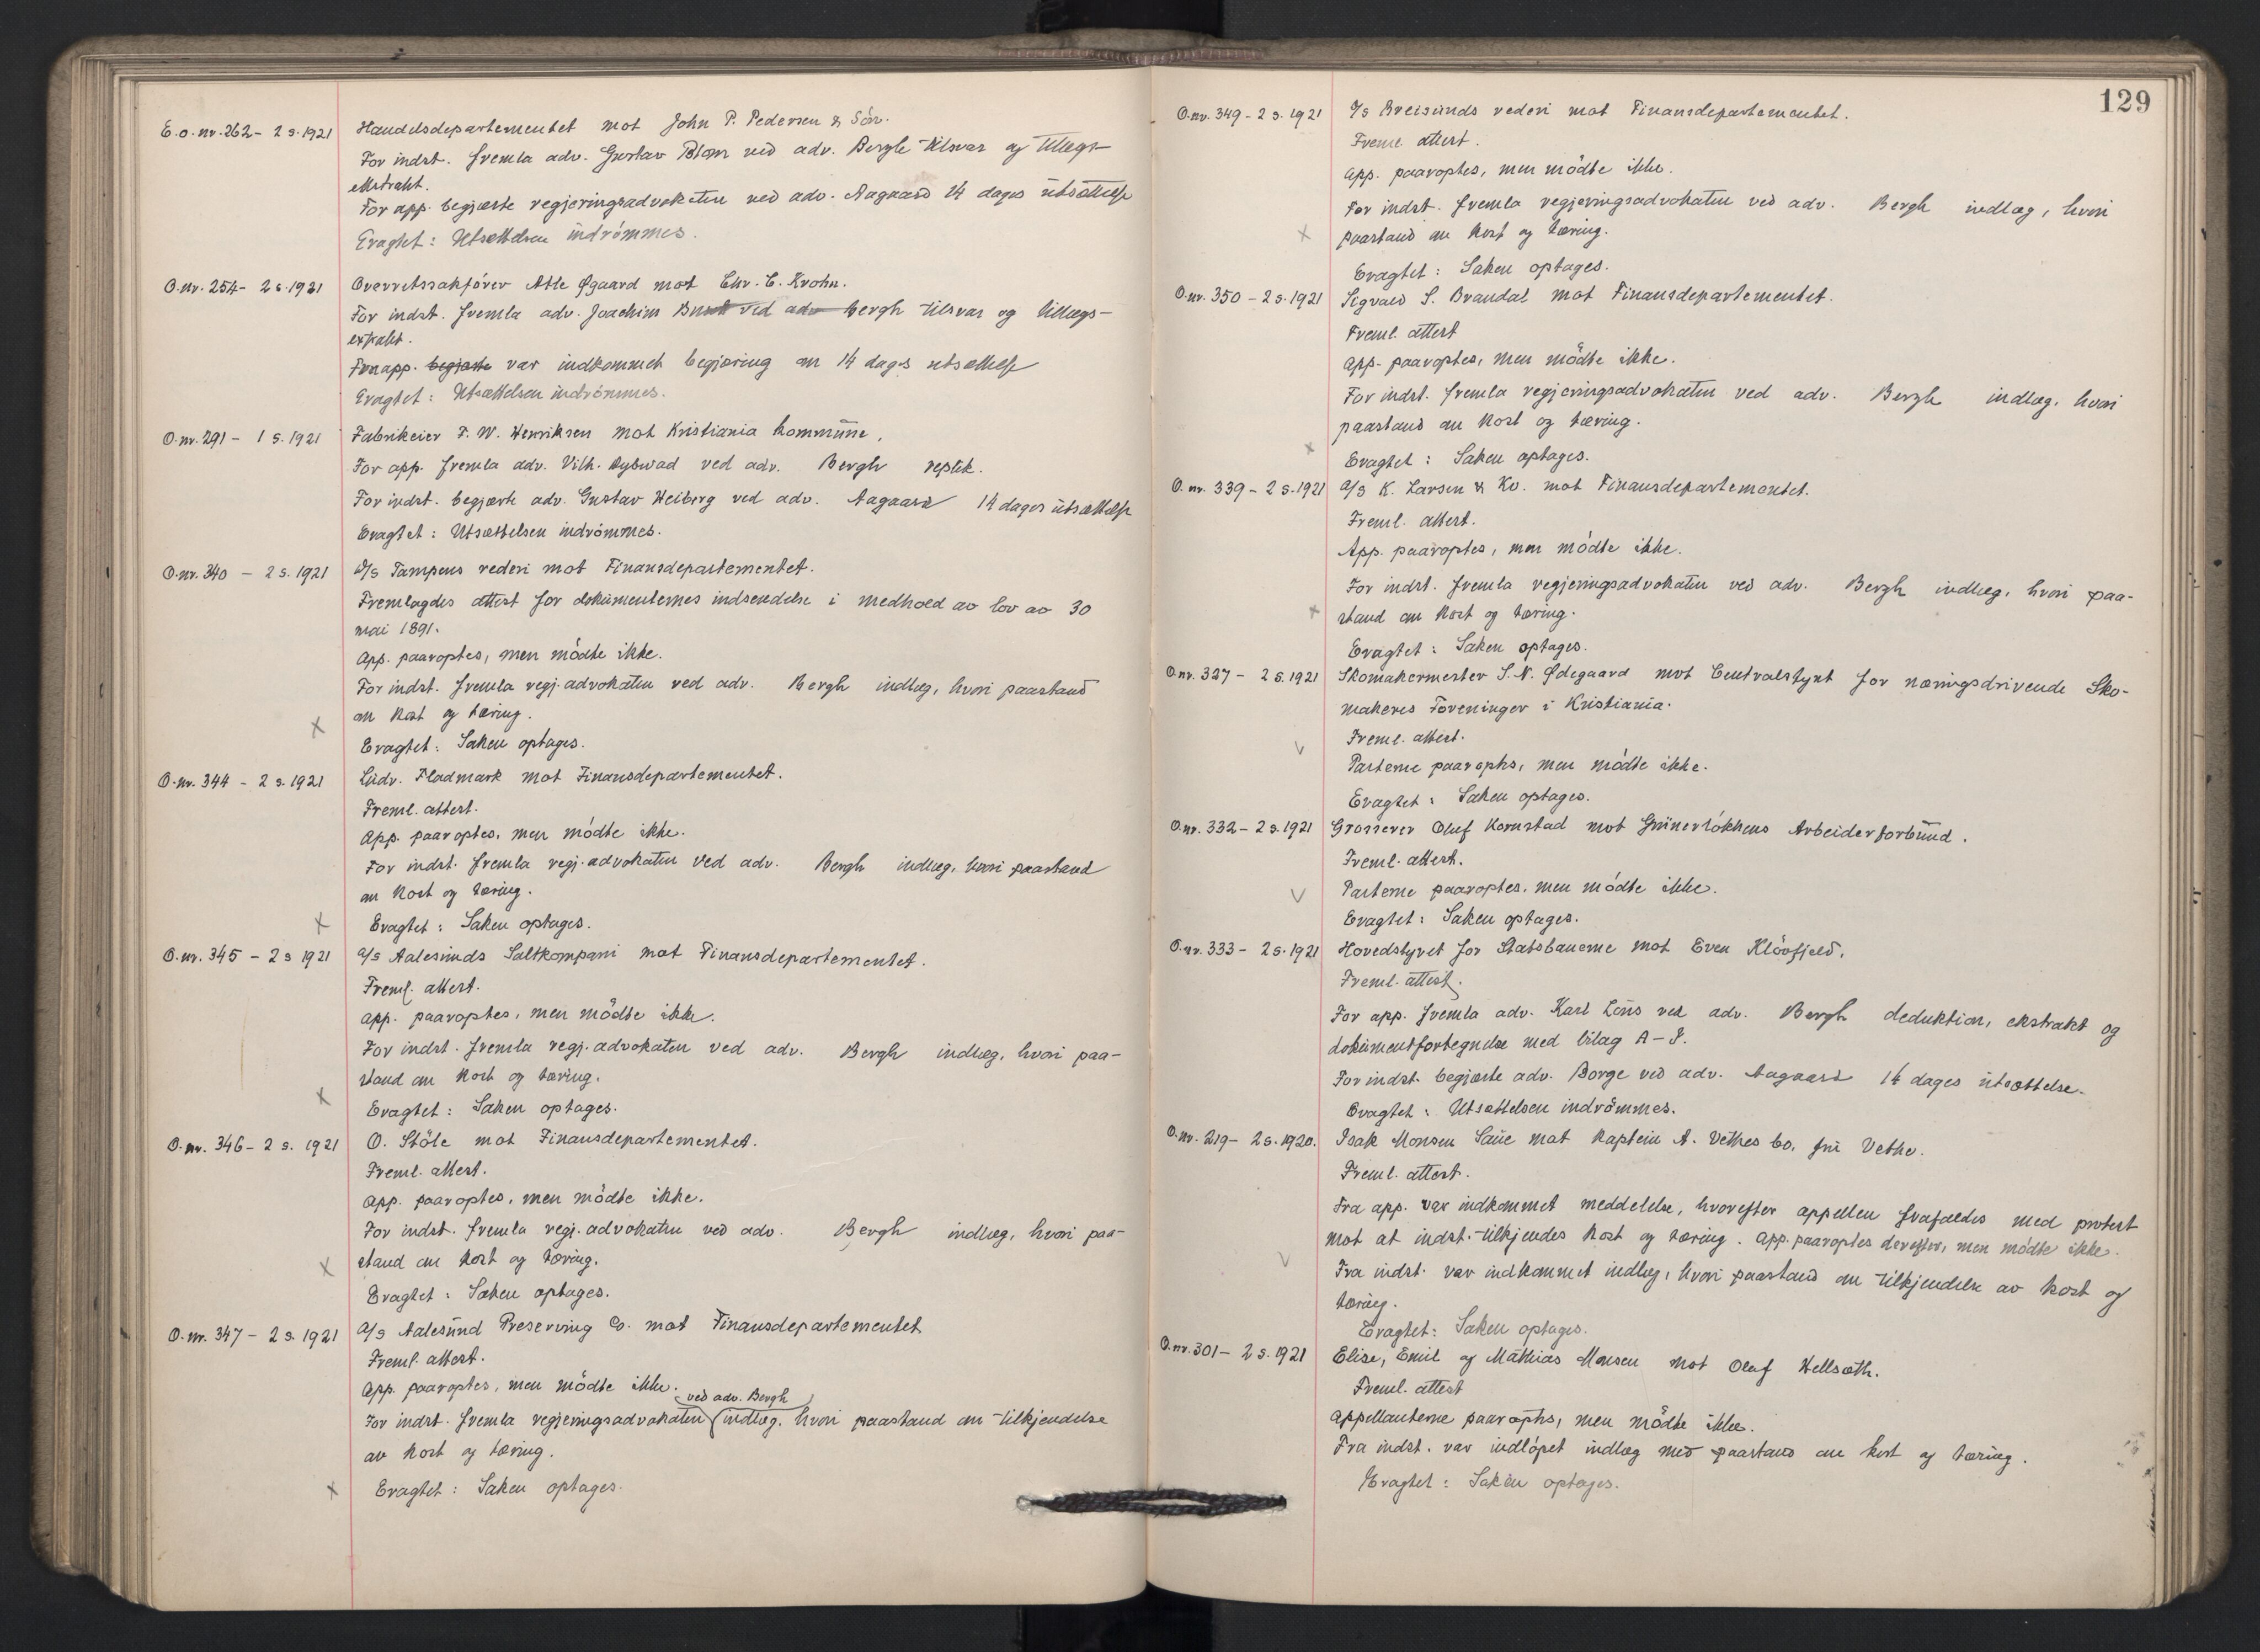 E.o.nr. 262 - 2 s. 1921 Handelsdepartementet mot John P. Pedersen & Sön.
For indst. fremla adv. Gustav Blom ved adv. Bergh tilsvar og tillægs-
ekstrakt.
For app. begjærte regjeringsadvokaten ved adv. Aagaard 14 dages utsættelse
Eragtet: Utsættelsen indrömmes.
O.nr. 254 - 2 s. 1921 Overretssakförer Atle Øgaard mot Chr. C. Krohn.
For indst. fremla adv. Joachim ved adv Bergh tilsvar og tillægs-
extrakt.
Fra app. begjærte var indkommet begjæring om 14 dages utsættelse
Eragtet: Utsættelsen indrömmes.
O.nr. 291 - 1 s. 1921 Fabrikeier F. W. Henriksen mot Kristiania kommune.
For app. fremla adv. Vilh. Dybwad ved adv. Bergh replik.
For indst. begjærte adv. Gustav Heiberg ved adv. Aagaard 14 dages utsættelse
Eragtet: Utsættelsen indrömmes.
O.nr. 340 - 2 s. 1921 A/S Tampens rederi mot Finansdepartementet.
Fremlagdes attest for dokumenternes indsendelse i medhold av lov av 30
mai 1891.
App. paaroptes, men mödte ikke.
For indst. fremla regj.advokaten ved adv. Bergh indlæg, hvori paastand
om kost og tæring.
X
Eragtet: Saken optages.
O.nr. 344 - 2 s. 1921 Ludv. Fladmark mot Finansdepartementet.
Freml. attest.
App. paaroptes, men mödte ikke.
For indst. fremla regj.advokaten ved adv. Bergh indlæg, hvori paastand
om kost og tæring.
X Eragtet: Saken optages.
O.nr. 345 - 2 s 1921 A/S Aalesunds Saltkompani mot Finansdepartementet.
Freml. attest.
App. paaroptes, men mödte ikke.
For indst. fremla regj.advokaten ved adv. Bergh indlæg, hvori paa-
stand om kost og tæring.
X Eragtet: Saken optages.
O.nr. 346 - 2 s. 1921 O. Stöle mot Finansdepartementet.
Freml. attest.
App. paaroptes, men mödte ikke.
For indst. fremla regj.advokaten ved adv. Bergh indlæg, hvori paa-
X stand om kost og tæring.
Eragtet: Saken optages.
O.nr. 347 - 2 s. 1921 A/S Aalesund Preserving Co. mot Finansdepartementet
Freml. attest.
App. paaroptes, men mödte ikke.
ved adv. Bergh
For indst. fremla regjeringsadvokaten indlæg, hvori paastand om tilkjendelse
av kost og tæring.
X Eragtet: Saken optages.
129
O.nr. 349 - 2 s. 1921 A/S Breisunds rederi mot Finansdepartementet.
Freml. attest.
App. paaroptes, men mödte ikke.
For indst. fremla regjeringsadvokaten ved adv. Bergh indlæg, hvori
X paastand om kost og tæring.
Eragtet: Saken optages.
O.nr. 350 - 2 s. 1921 Sigvald S. Brandal mot Finansdepartementet.
Freml. attest
App. paaroptes, men mödte ikke.
For indst. fremla regjeringsadvokaten ved adv. Bergh indlæg, hvori
paastand om kost og tæring.
X Eragtet: Saken optages.
O.nr. 339 - 2 s. 1921 A/S K. Larsen & Ko. mot Finansdepartementet.
Freml. attest.
App. paaroptes, men mödte ikke.
For indst. fremla regjeringsadvokaten ved adv. Bergh indlæg, hvori paa-
X stand om kost og tæring.
Eragtet: Saken optages.
O.nr. 327 - 2 s. 1921 Skomakermester S. N. Ødegaard mot Centralstyret for næringsdrivende Sko-
makeres Foreninger i Kristiania.
V Freml. attest.
Parterne paaroptes, men mödte ikke.
Eragtet: Saken optages.
O.nr. 332 - 2 s. 1921 Grosserer Oluf Kornstad mot Grünerlökkens Arbeiderforbund.
Freml. attest.
V Parterne paaroptes, men mödte ikke.
Eragtet: Saken optages.
O.nr. 333 - 2 s. 1921 Hovedstyret for Statsbanerne mot Even Klövfjeld.
Freml. attest.
For app. fremla adv. Karl Lous ved adv. Bergh deduktion, ekstrakt og
dokumentfortegnelse med bilag A - J.
For indst. begjærte adv. Borge ved adv. Aagaard 14 dages utsættelse.
Eragtet: Utsættelsen indrömmes.
O.nr. 219 - 2 s. 1920. Isak Monsen Saue mot Kaptein A. Vethes bo, fru Vethe.
Freml. attest.
Fra app. var indkommet meddelelse, hvorefter appellen frafaldes med protest
mot at indst. tilkjendes kost og tæring. App. paaroptes derefter, men mödte ikke.
V Fra indst. var indkommet indlæg, hvori paastand om tilkjendelse av kost og
tæring.
Eragtet: Saken optages.
O.nr. 301 - 2 s. 1921 Elise, Emil og Mathias Monsen mot Olaf Hellsøth.
Freml. attest
Appellanterne paaroptes, men mödte ikke.
Fra indst. var indlöpet indlæg med paastand om kost og tæring.
Eragtet: Saken optages.